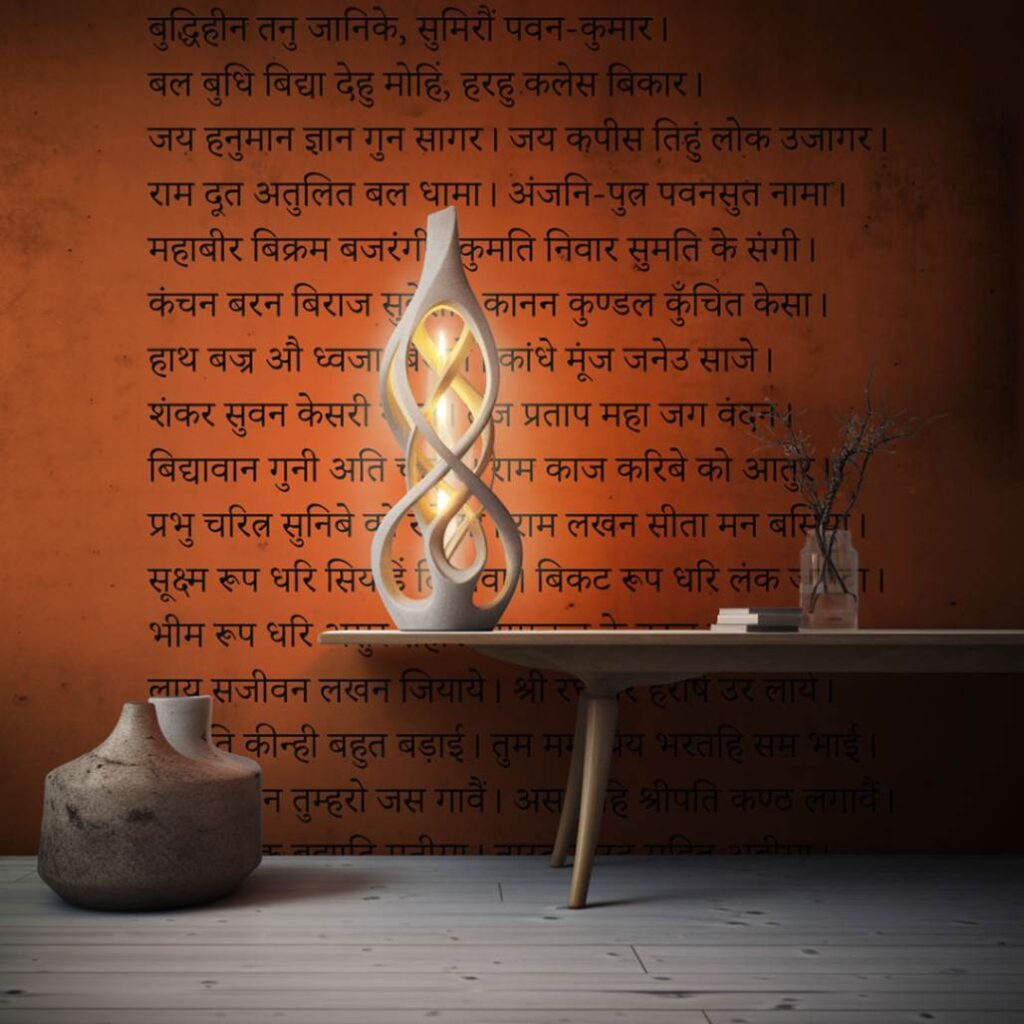 बुद्धिहीन तनु जानिके, सुमिरौं पवन-कुमार।
बल बुधि बिद्या देहु मोहिं, हरहु कलेस बिकार।
जय हनुमान ज्ञान गुन सागर। जय कपीस तिहुं लोक उजागर।
राम दूत अतुलित बल धामा। अंजनि-पुत्र पवनसुत नामा।
महाबीर बिक्रम बजरंगी कुमति निवार सुमति के संगी।
कंचन बरन बिराज कानन कुण्डल कुँचित केसा।
हाथ बज्र औ ध्वजा कांधे मूंज जनेउ साजे।
शंकर सुवन केसरी प्रताप महा जग वंदन।
बिद्यावान गुनी अति राम काज करिबे को आतुर।
प्रभु चरित्र सुनिबे राम लखन सीता मन बसिया।
सूक्ष्म रूप धरि बिकट रूप धरि लंक
भीम रूप धरि
लाय सजीवन लखन जियाये। श्री उर लाये।
कीन्ही बहुत बड़ाई। तुम भरतहि सम भाई।
तुम्हरो जस गावैं। अस श्रीपति कण्ठ लगावैं।